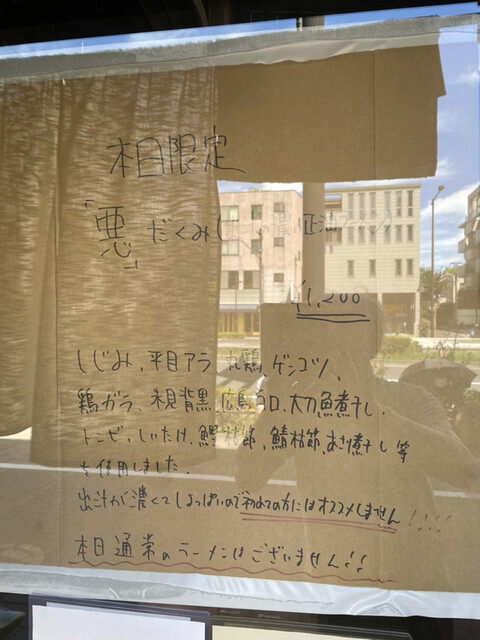 本日限定
「悪」だくみ(
¥1,200
しじみ、平目アラ 丸鶏、ゲンコツ、
鶏ガラ、氷見背黒、広島白口、太刀魚煮干し、
トンビ、しいたけ、鰹枯節、鯖枯節、あさり煮干し 等
を使用しました。
出汁が濃くてしょっぱいので初めての方にはオススメしません!!!!
本日通常のラーメンはございません!!